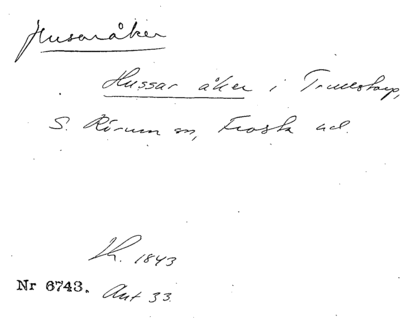 Husaråker
Hussar åker i Trulstorp,
S. Rörum sn, Frosta hd.
Lh. 1843
Nr 6743. Ant 33.